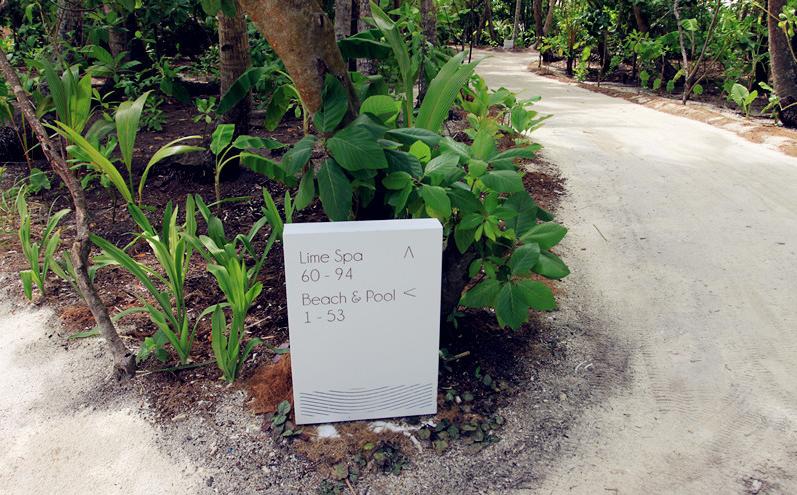 Lime Spa ∧
60 - 94
Beach & Pool <
1 - 53